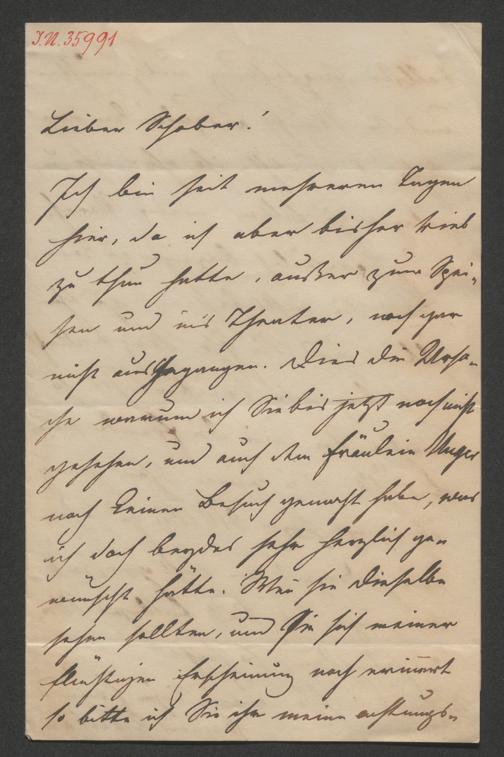 I.N. 35991
Lieber Schober!
Ich bin seit mehreren Tagen
hier, da ich aber bisher viel
zu thun hatte, außer zum Spei-
sen und in's Theater, noch gar
nicht ausgegangen. Dies die Ursa-
che warum ich Sie bis jetzt noch nicht
gesehen, und auch dem Fräulein Unger
noch keinen Besuch gemacht habe, was
ich doch beydes sehr herzlich ge-
wünscht hätte. Wenn sie dieselbe
sehen sollten, und Sie sich meiner
flüchtigen Erscheinung noch erinnert
so bitte ich Sie ihr meine achtungs-